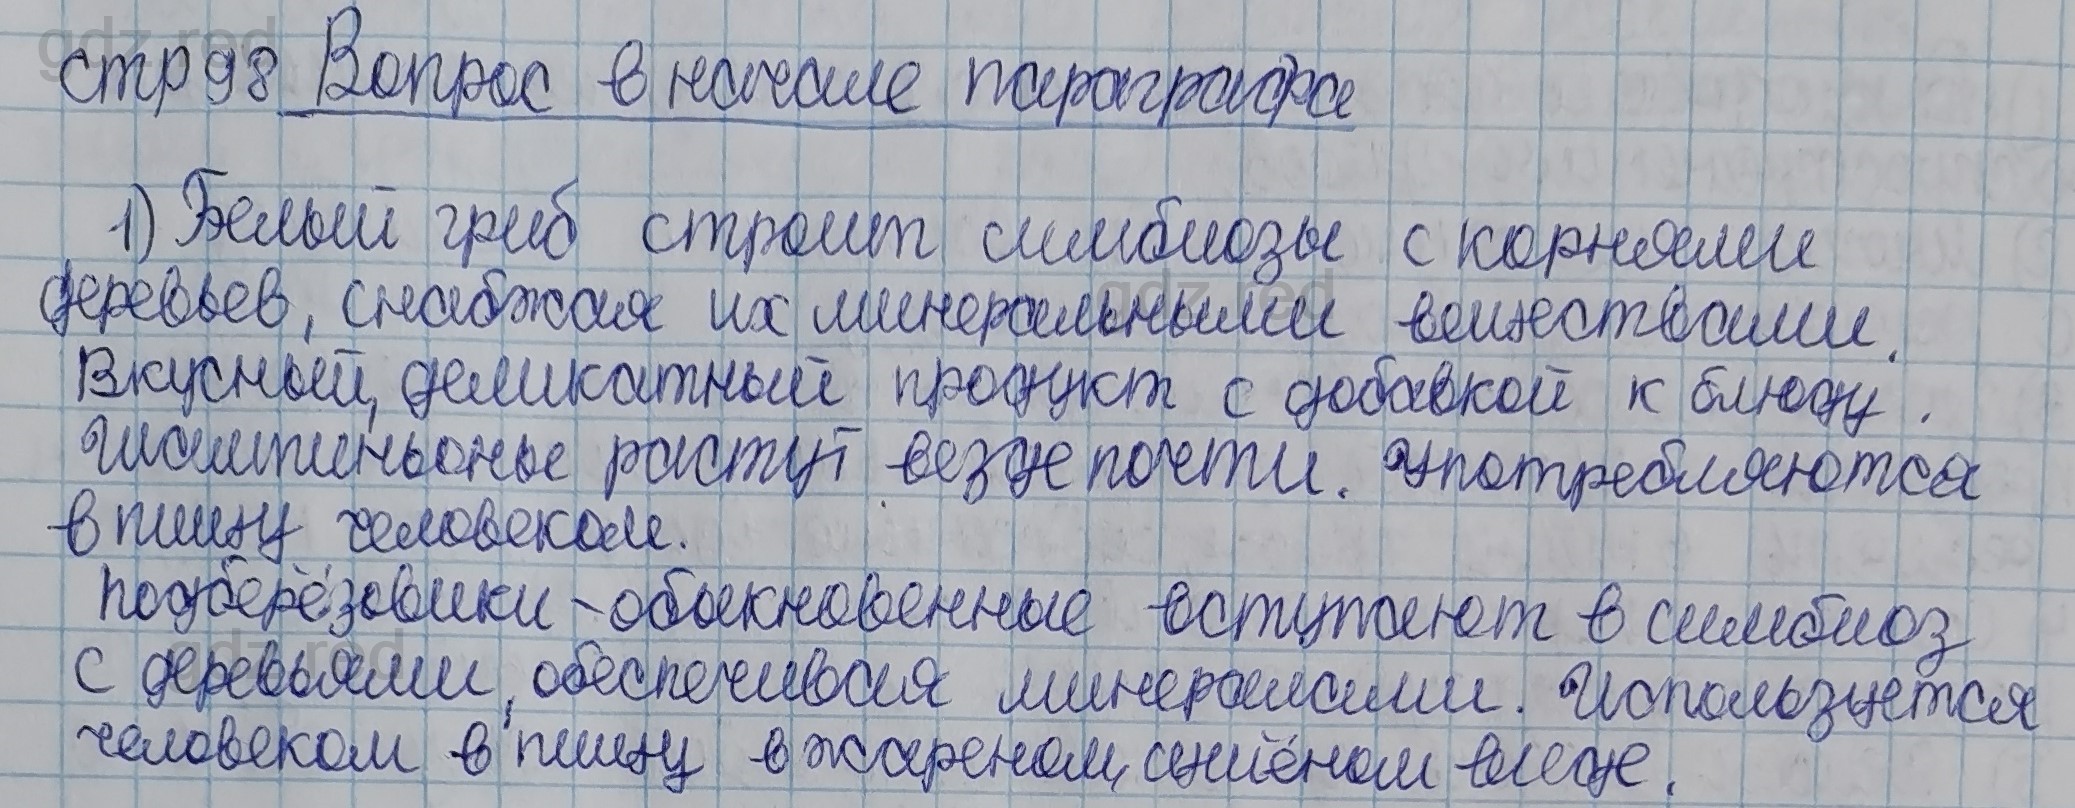 стр 98 Вопрос в начале параграфа
1) Белый гриб строит симбиозы с корнями
деревьев, снабжая их минеральными веществами.
Вкусный, деликатный продукт с добавкой к блюду.
Шампиньоны растут везде почти. Употребляются
в пищу человеком.
Подберёзовики - обыкновенные вступают в симбиоз
с деревьями, обеспечивая минералами. Используется
человеком в пищу в жареном, сушёном виде.
gdz.red
gdz.red
gdz.red